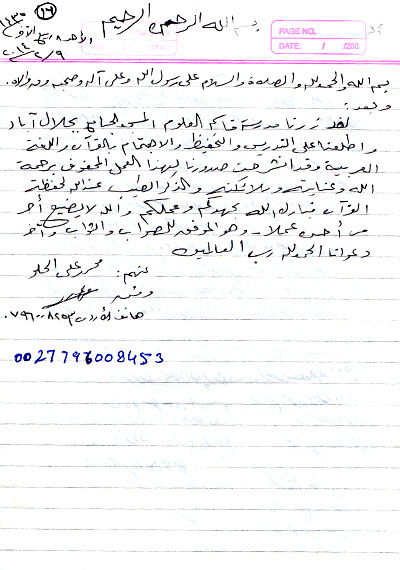 بسم الله الرحمن الرحيم
١٦
PAGE NO.
DATE: / /200
الأحد ٨ ربيع الأول
٢٠١٤/٢/٩
بسم الله والحمد لله والصلاة والسلام على رسول الله وعلى آله وصحبه ومن والاه.
وبعد:
لقد زرنا مدرسة قاسم العلوم المسجد الجامع بجلال آباد
واطلعنا على التدريس والتحفيظ والاهتمام بالقرآن واللغة
العربية وقد انشرحت صدورنا لهذا العمل المحفوف برحمة
الله وعنايته وملائكته والذكر الطيب عند الله لحفظة
القرآن فبارك الله بجهدكم وعملكم والله لا يضيع أجر
من أحسن عملا - وهو الموفق للصواب والثواب وآخر
دعوانا الحمد لله رب العالمين
عنهم: محمد علي الحلو
هاتف الأردن
0027796008453